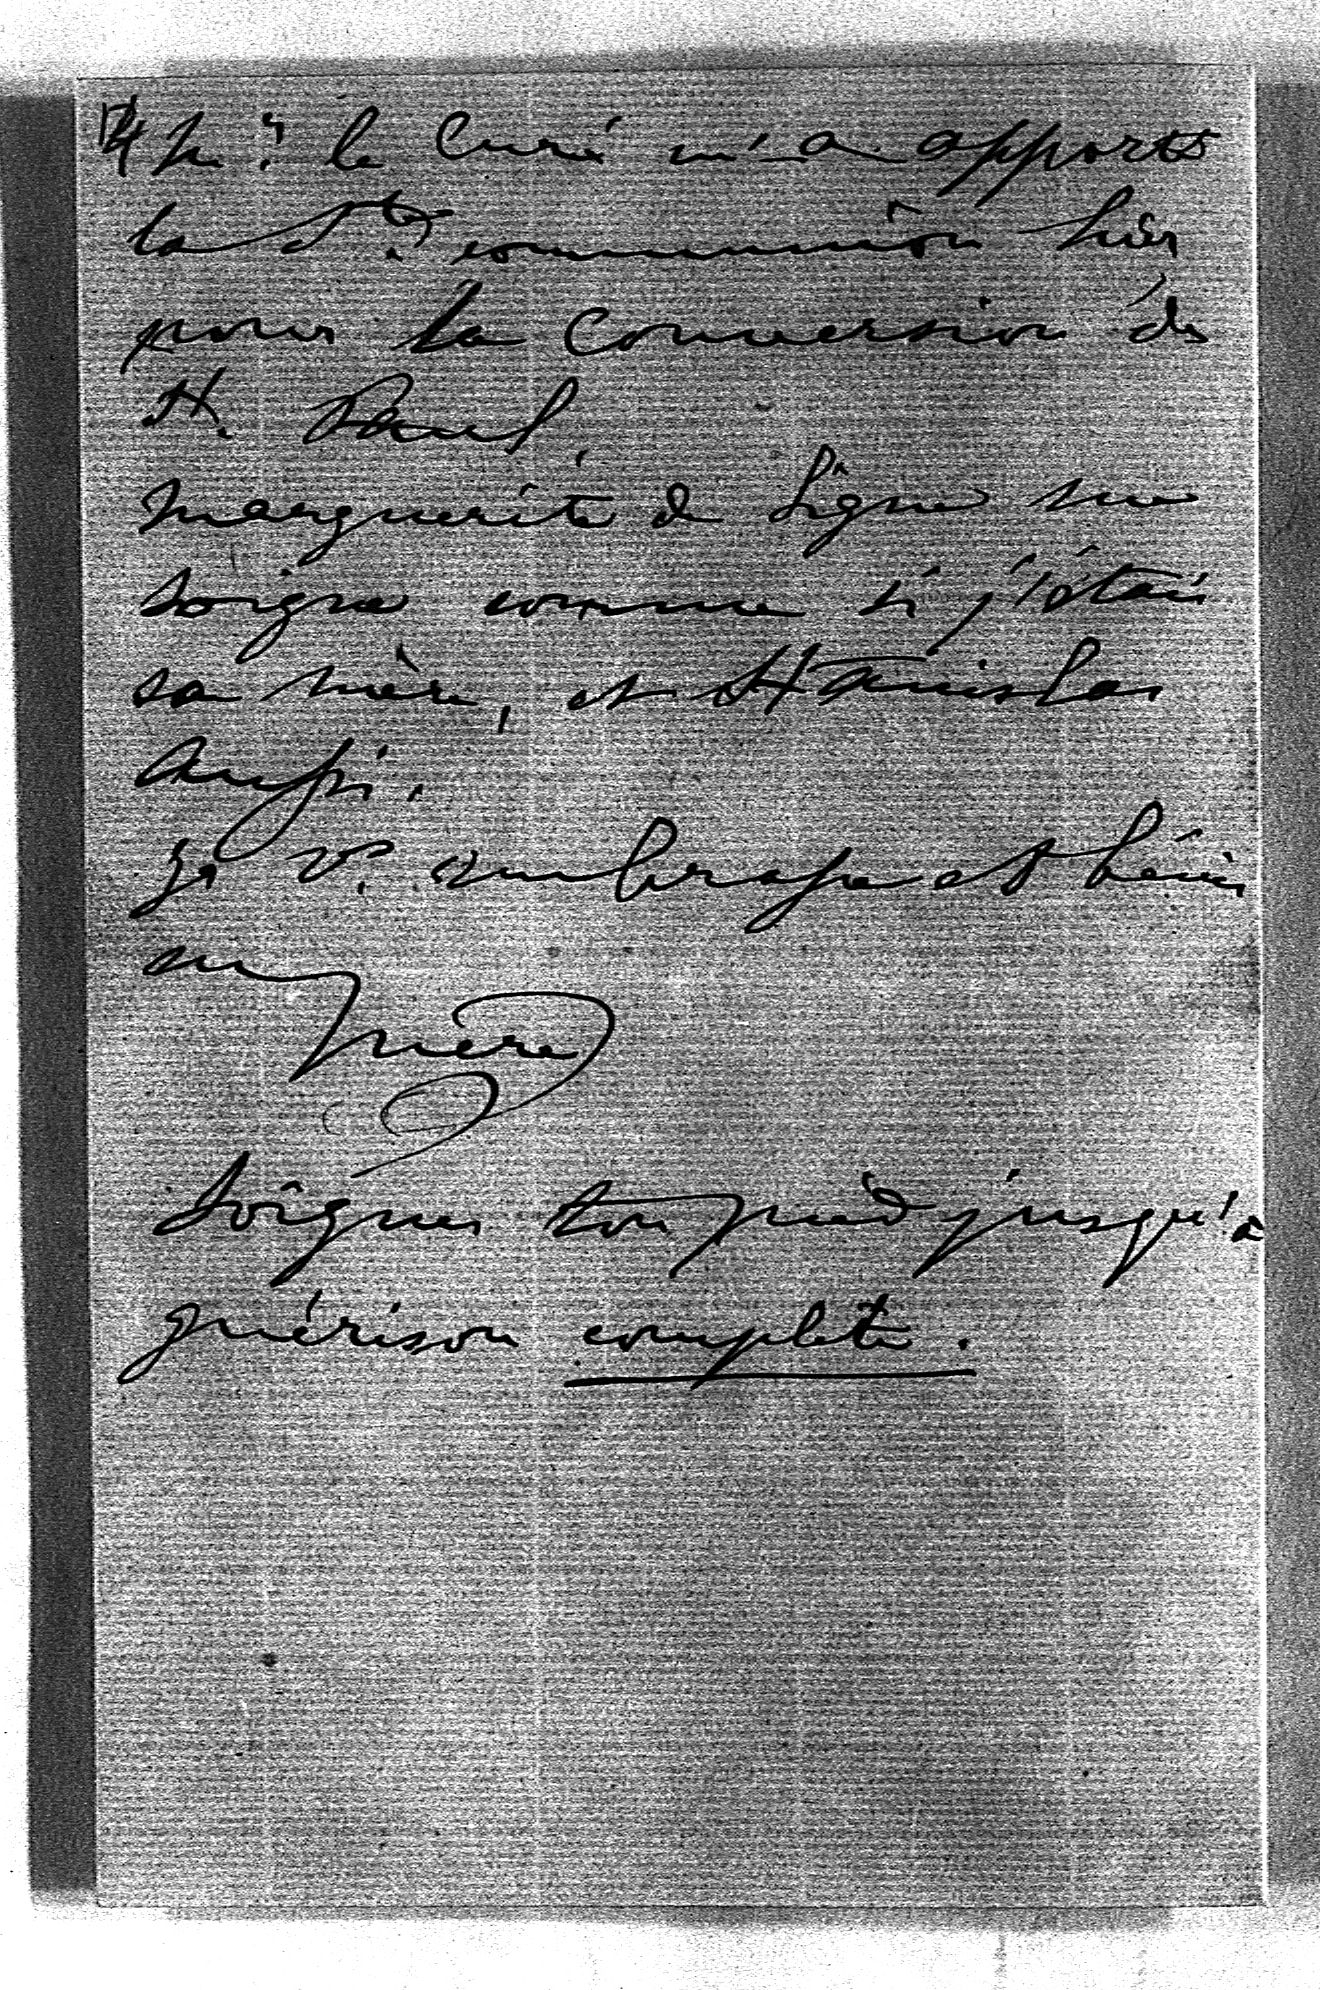 Mr. le Curé m'a apporté
la Ste. communion hier
pour la Conversion de
St. Paul.
Marguerite de Ligne me
soigne comme si j'étais
sa mère, et Stanislas
Aussi.
Je vs. embrasse et bénis
Mère
Soignes ton pied jusqu'à
guérison complète.